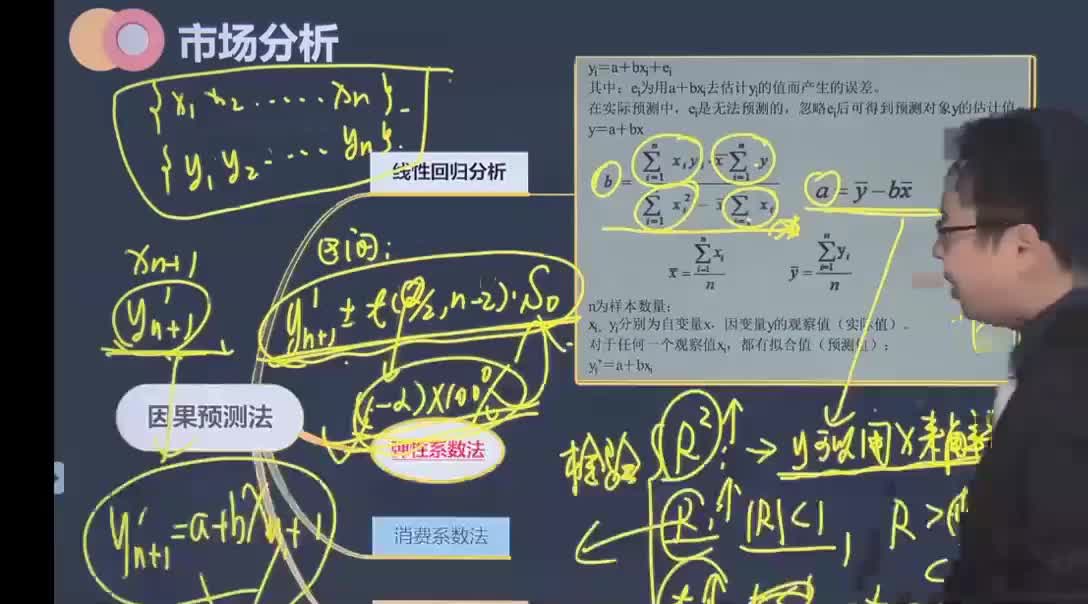 市场分析
{x₁ x₂ ...... xn}
{y₁ y₂ ...... yn}
线性回归分析
yᵢ=a+bxᵢ+eᵢ
其中：eᵢ为用a+bxᵢ去估计yᵢ的值而产生的误差。
在实际预测中，eᵢ是无法预测的，忽略eᵢ后可得到预测对象y的估计值
y=a+bx
b = (∑ᵢ₌₁ⁿ xᵢyᵢ - x̄∑ᵢ₌₁ⁿ y) / (∑ᵢ₌₁ⁿ xᵢ² - x̄∑ᵢ₌₁ⁿ xᵢ)
a = ȳ - bx̄
x̄ = ∑ᵢ₌₁ⁿ xᵢ / n
ȳ = ∑ᵢ₌₁ⁿ yᵢ / n
n为样本数量；
xᵢ、yᵢ分别为自变量x，因变量y的观察值（实际值）。
对于任何一个观察值xᵢ，都有拟合值（预测值）：
yᵢ'=a+bxᵢ
xn+1
y'n+1
区间：
y'n+1 ± t(α/2, n-2)·S₀
(1-α)×100%
因果预测法
弹性系数法
消费系数法
y'n+1=a+bxn+1
检验
R²↑ → y可以用x来
R↑ |R|<1, R>
t↑